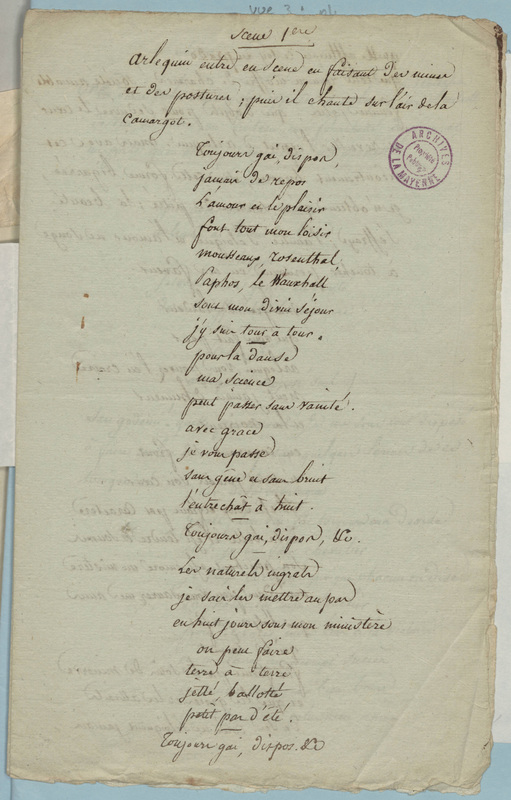 vue 3
Scene 1ere
Arlequin entre en scene en faisant des mines
et des postures ; puis il chante sur l'air de la
camargot.
Toujours gai, dispos,
jamais de repos
L'amour et le plaisir
font tout mon loisir
mousseaux, rosenthal,
Paphos, le Wauxhall
sont mon divin séjour
j'y suis tour à tour.
pour la danse
ma science
peut passer sans vanité.
avec grace
je vous passe
sans gêne et sans bruit
l'entrechât à huit.
Toujours gai, dispos, &c.
Les naturels ingrats
je sais les mettre au pas
en huit jours sous mon ministère
on peut faire
terre à terre
jetté, ballotté
petit pas d'été.
Toujours gai, dispos. &c
ARCHIVES
DE LA MAYENNE